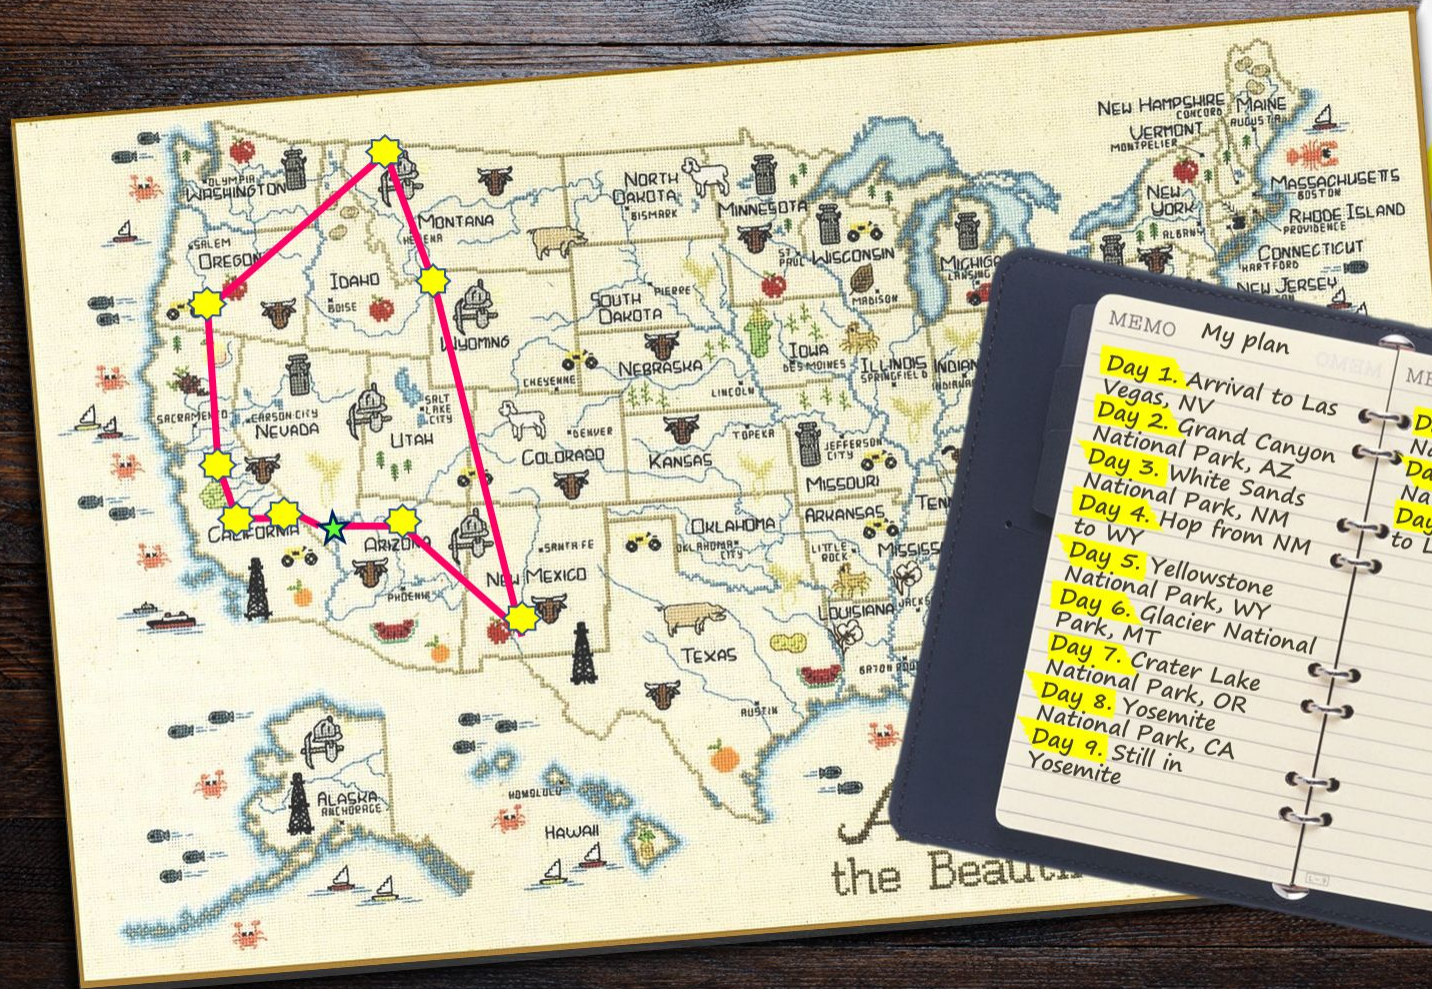 NEW HAMPSHIRE
CONCORD
MAINE
AUGUSTA
VERMONT
MONTPELIER
MASSACHUSETTS
BOSTON
NEW
YORK
ALBANY
RHODE ISLAND
PROVIDENCE
CONNECTICUT
HARTFORD
NEW JERSEY
OLYMPIA
WASHINGTON
MONTANA
HELENA
NORTH
DAKOTA
BISMARK
MINNESOTA
ST.
PAUL
WISCONSIN
MADISON
LANSING
SALEM
OREGON
IDAHO
BOISE
WYOMING
CHEYENNE
SOUTH
DAKOTA
PIERRE
NEBRASKA
LINCOLN
IOWA
DES MOINES
ILLINOIS
SPRINGFIELD
SACRAMENTO
CARSON CITY
NEVADA
SALT
LAKE
CITY
UTAH
DENVER
COLORADO
KANSAS
TOPEKA
JEFFERSON
CITY
MISSOURI
CALIFORNIA
ARIZONA
PHOENIX
SANTA FE
NEW MEXICO
OKLAHOMA
OKLAHOMA
CITY
ARKANSAS
LITTLE
ROCK
LOUISIANA
TEXAS
AUSTIN
ALASKA
ANCHORAGE
HONOLULU
HAWAII
the
MEMO
My plan
Day 1. Arrival to Las
Vegas, NV
Day 2. Grand Canyon
National Park, AZ
Day 3. White Sands
National Park, NM
Day 4. Hop from NM
to WY
Day 5. Yellowstone
National Park, WY
Day 6. Glacier National
Park, MT
Day 7. Crater Lake
National Park, OR
Day 8. Yosemite
National Park, CA
Day 9. Still in
Yosemite